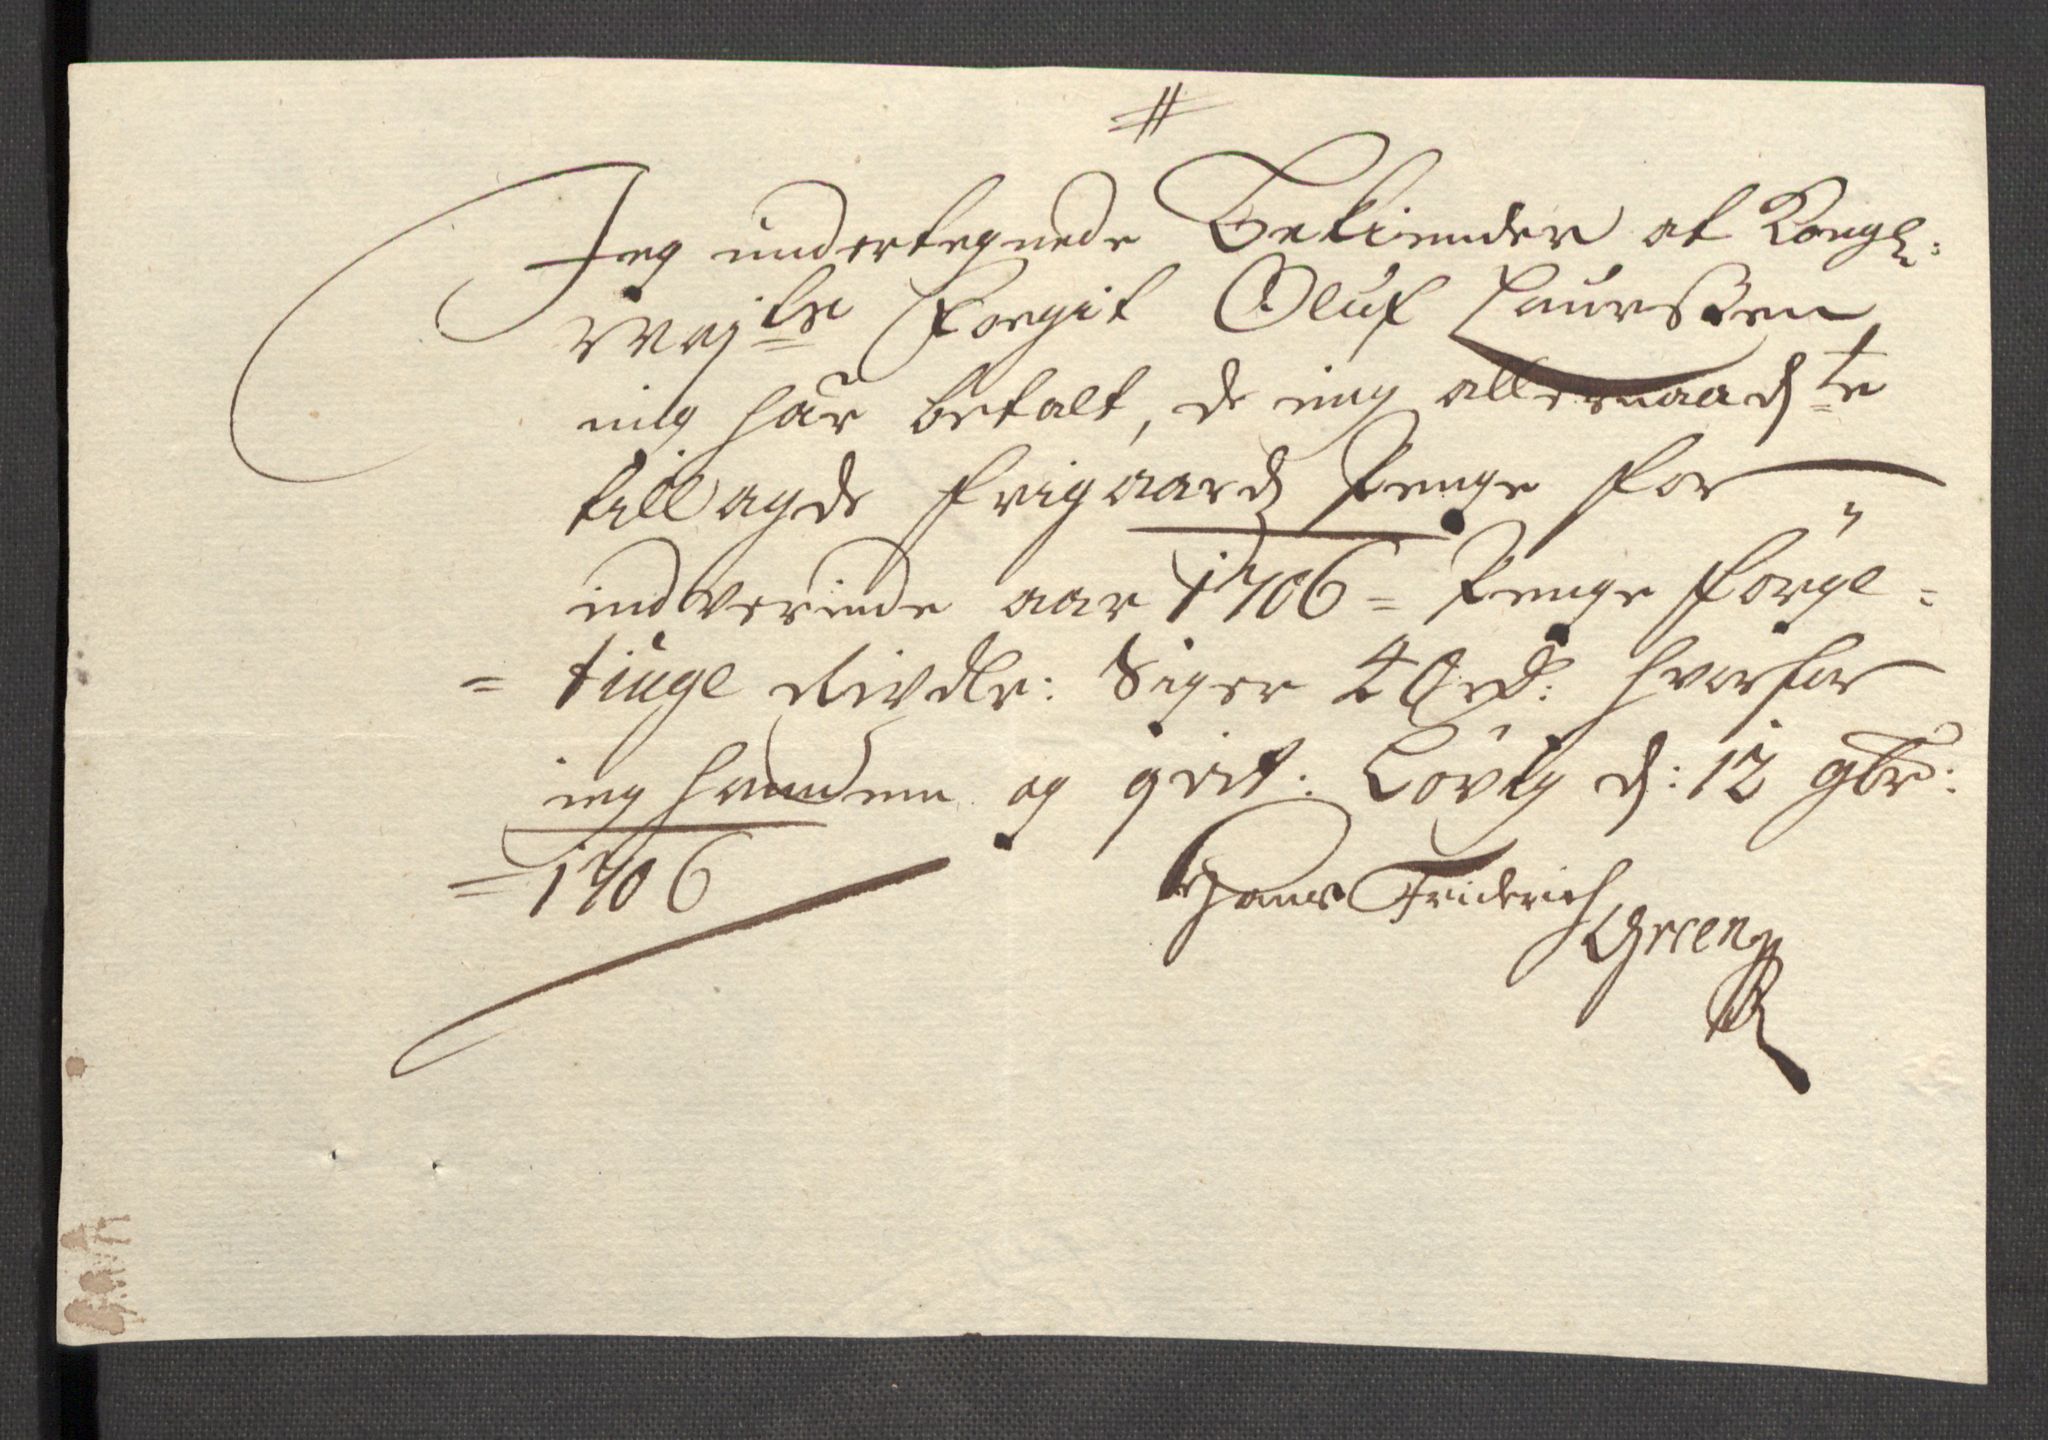 #
Jeg undertegnede Bekiender at Kongl:
Maj:ts Foegit Oluf Laurssøn
mig har betalt, de mig allernaadste
tillagde frigaards Penge for
indverende aar 1706 = Penge Førge=
= tiuge Rixdlr: Siger 40 rd: hvorfor
ieg hannem og qvit: Løvig d: 12 9br:
= 1706
Hans Friderich
Green